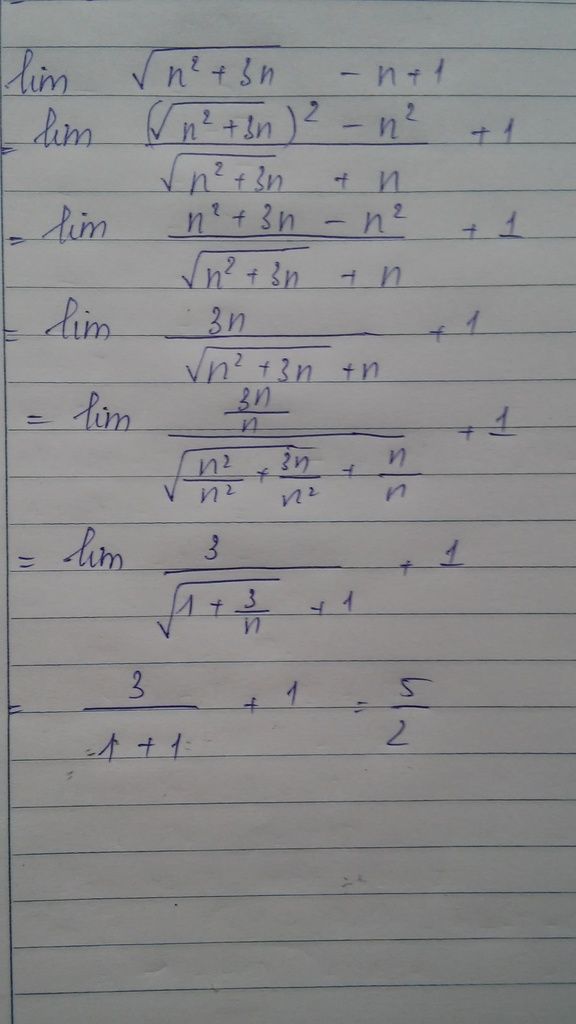 lim √(n² + 3n) - n + 1
= lim ((√(n² + 3n))² - n²) / (√(n² + 3n) + n) + 1
= lim (n² + 3n - n²) / (√(n² + 3n) + n) + 1
= lim 3n / (√(n² + 3n) + n) + 1
= lim (3n/n) / (√(n²/n² + 3n/n²) + n/n) + 1
= lim 3 / (√(1 + 3/n) + 1) + 1
= 3 / (1 + 1) + 1 = 5/2